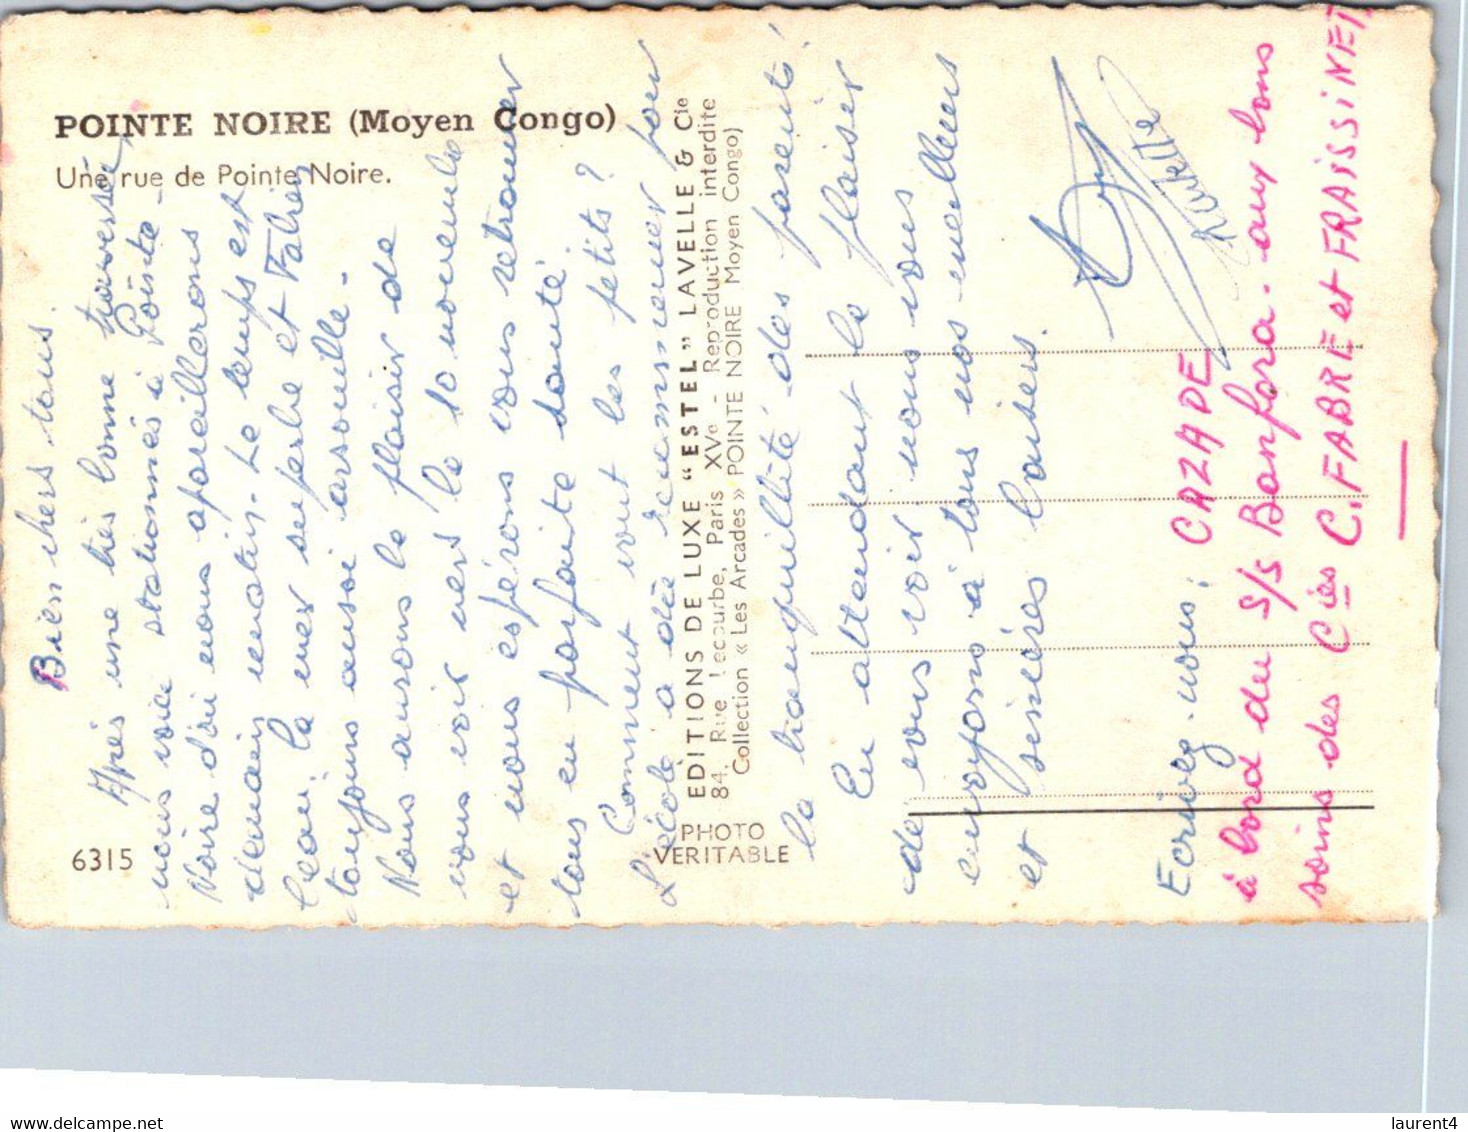 POINTE NOIRE (Moyen Congo)
Une rue de Pointe Noire.
6315
EDITIONS DE LUXE “ESTEL” LAVELLE & Cie
84, Rue Lecourbe, Paris XVe - Reproduction interdite
Collection « Les Arcades » POINTE NOIRE Moyen Congo)
PHOTO
VERITABLE
Bien chers tous.
Après une très bonne traversée,
nous voici stationnés à Pointe-
Noire d'où nous apareillerons
demain matin. Le temps est
beau, la mer superbe et Fabien
toujours aussi
Nous aurons le plaisir de
vous voir vers le 10 novembre
et nous espérons vous retrouver
tous en parfaite santé
Comment vont les petits ?
L'école a dû recommencer pour
la tranquillité des parents !
En attendant le plaisir
de vous voir nous vous
envoyons à tous nos meilleurs
et sincères baisers.
Ecrivez-nous : CAZADE
à bord du S/S Banfora - aux bons
soins des Cies C. FABRE et FRAISSINET,
laurent4